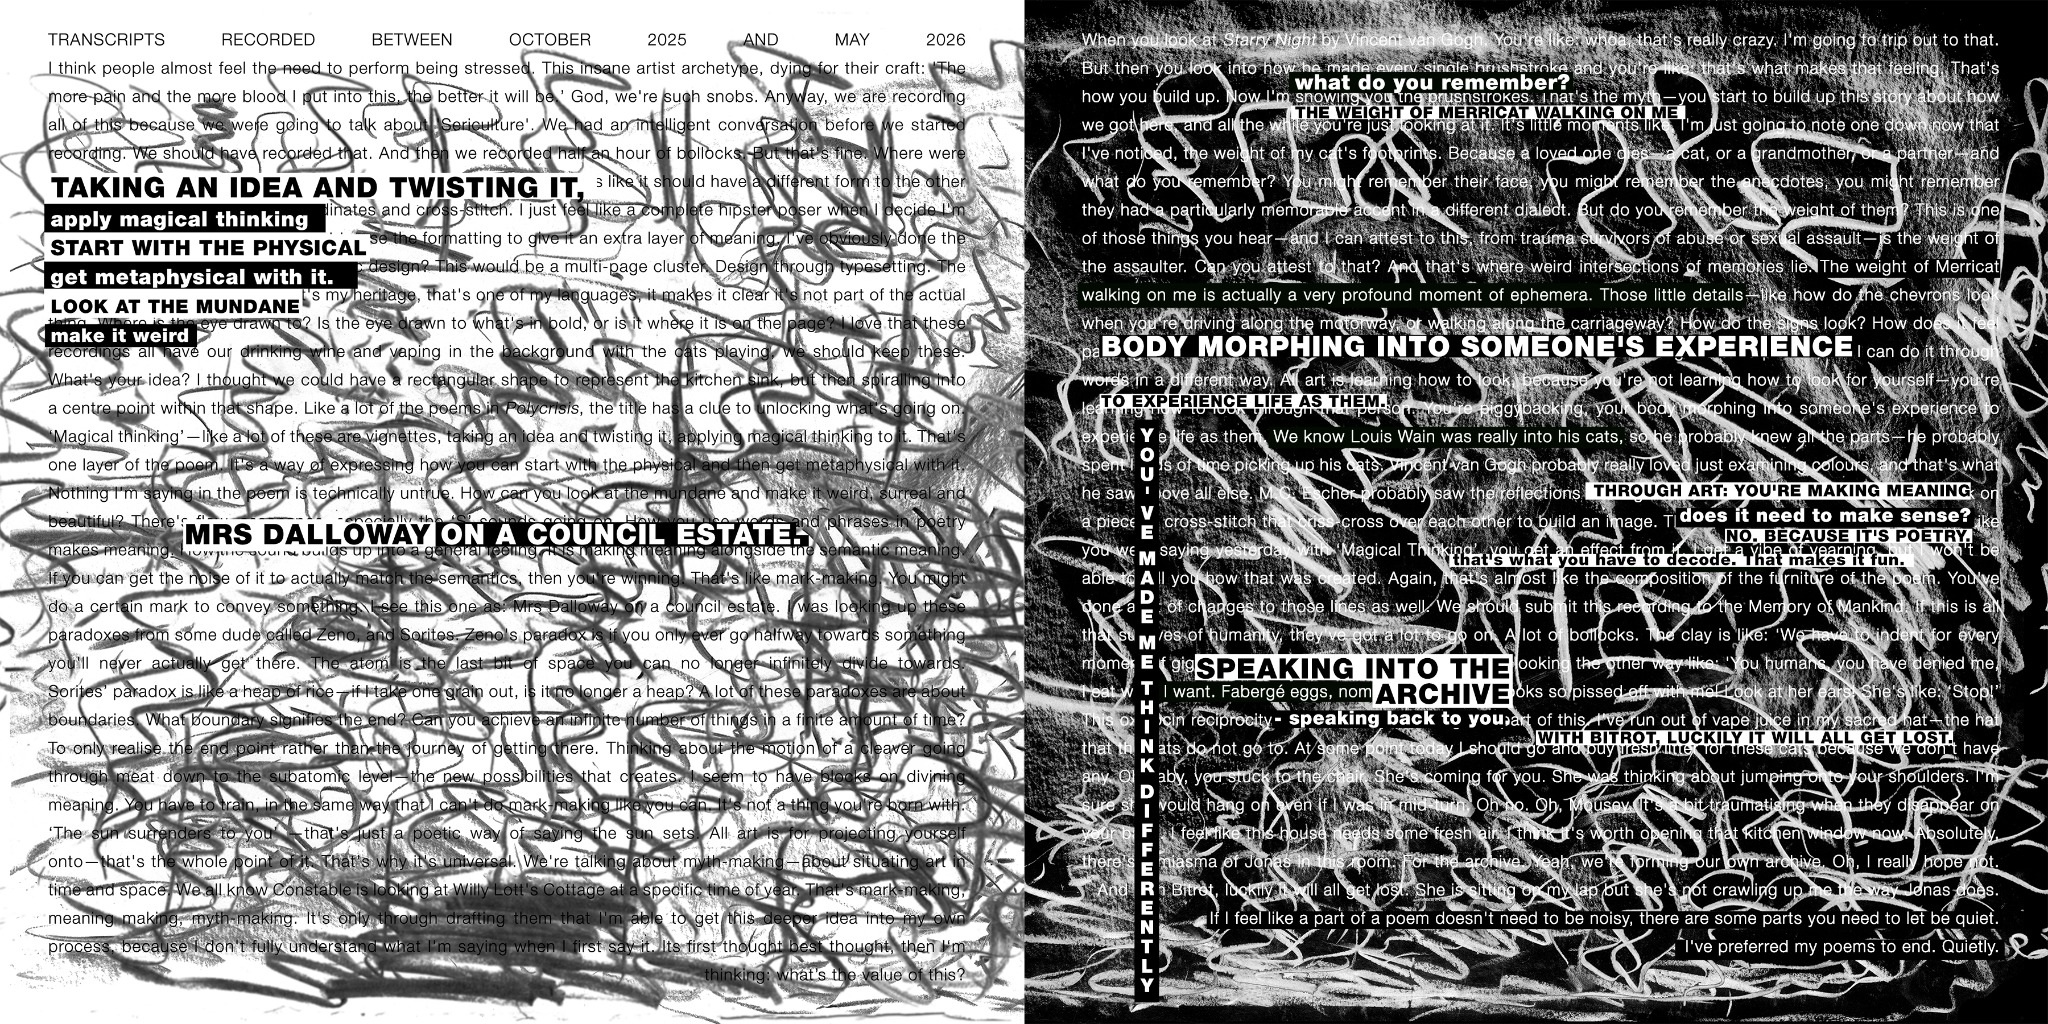 TRANSCRIPTS RECORDED BETWEEN OCTOBER 2025 AND MAY 2026
I think people almost feel the need to perform being stressed. This insane artist archetype, dying for their craft: 'The
more pain and the more blood I put into this, the better it will be.' God, we're such snobs. Anyway, we are recording
all of this because we were going to talk about 'Sericulture'. We had an intelligent conversation before we started
recording. We should have recorded that. And then we recorded half an hour of bollocks. But that's fine. Where were
TAKING AN IDEA AND TWISTING IT, s like it should have a different form to the other
apply magical thinking dinates and cross-stitch. I just feel like a complete hipster poser when I decide I'm
START WITH THE PHYSICAL se the formatting to give it an extra layer of meaning. I've obviously done the
get metaphysical with it. design? This would be a multi-page cluster. Design through typesetting. The
LOOK AT THE MUNDANE 's my heritage, that's one of my languages, it makes it clear it's not part of the actual
thing. Where is the eye drawn to? Is the eye drawn to what's in bold, or is it where it is on the page? I love that these
make it weird
recordings all have our drinking wine and vaping in the background with the cats playing, we should keep these.
What's your idea? I thought we could have a rectangular shape to represent the kitchen sink, but then spiralling into
a centre point within that shape. Like a lot of the poems in Polycrisis, the title has a clue to unlocking what's going on.
'Magical thinking'—like a lot of these are vignettes, taking an idea and twisting it, applying magical thinking to it. That's
one layer of the poem. It's a way of expressing how you can start with the physical and then get metaphysical with it.
Nothing I'm saying in the poem is technically untrue. How can you look at the mundane and make it weird, surreal and
beautiful? There's especially the 'S' sounds going on. How you use words and phrases in poetry
MRS DALLOWAY ON A COUNCIL ESTATE.
makes meaning. How the sound builds up into a general feeling. It is making meaning alongside the semantic meaning.
If you can get the noise of it to actually match the semantics, then you're winning. That's like mark-making. You might
do a certain mark to convey something. I see this one as: Mrs Dalloway on a council estate. I was looking up these
paradoxes from some dude called Zeno, and Sorites. Zeno's paradox is if you only ever go halfway towards something
you'll never actually get there. The atom is the last bit of space you can no longer infinitely divide towards.
Sorites' paradox is like a heap of rice—if I take one grain out, is it no longer a heap? A lot of these paradoxes are about
boundaries. What boundary signifies the end? Can you achieve an infinite number of things in a finite amount of time?
To only realise the end point rather than the journey of getting there. Thinking about the motion of a cleaver going
through meat down to the subatomic level—the new possibilities that creates. I seem to have blocks on divining
meaning. You have to train, in the same way that I can't do mark-making like you can. It's not a thing you're born with.
'The sun surrenders to you' —that's just a poetic way of saying the sun sets. All art is for projecting yourself
onto—that's the whole point of it. That's why it's universal. We're talking about myth-making—about situating art in
time and space. We all know Constable is looking at Willy Lott's Cottage at a specific time of year. That's mark-making,
meaning making, myth-making. It's only through drafting them that I'm able to get this deeper idea into my own
process, because I don't fully understand what I'm saying when I first say it. Its first thought best thought, then I'm
thinking: what's the value of this?
When you look at Starry Night by Vincent van Gogh. You're like: whoa, that's really crazy. I'm going to trip out to that.
But then you look into how he made every single brushstroke and you're like: that's what makes that feeling. That's
what do you remember?
how you build up. Now I'm showing you the brushstrokes. That's the myth—you start to build up this story about how
THE WEIGHT OF MERRICAT WALKING ON ME
we got here, and all the while you're just looking at it. It's little moments like, I'm just going to note one down now that
I've noticed, the weight of my cat's footprints. Because a loved one dies—a cat, or a grandmother, or a partner—and
what do you remember? You might remember their face, you might remember the anecdotes, you might remember
they had a particularly memorable accent in a different dialect. But do you remember the weight of them? This is one
of those things you hear—and I can attest to this, from trauma survivors of abuse or sexual assault—is the weight of
the assaulter. Can you attest to that? And that's where weird intersections of memories lie. The weight of Merricat
walking on me is actually a very profound moment of ephemera. Those little details—like how do the chevrons look
when you're driving along the motorway, or walking along the carriageway? How do the signs look? How does it feel
pa BODY MORPHING INTO SOMEONE'S EXPERIENCE I can do it through
words in a different way. All art is learning how to look, because you're not learning how to look for yourself—you're
TO EXPERIENCE LIFE AS THEM.
learning how to look through that person. You're piggybacking, your body morphing into someone's experience to
YOU'VE MADE ME THINK DIFFERENTLY
experie e life as them. We know Louis Wain was really into his cats, so he probably knew all the parts—he probably
spent l s of time picking up his cats. Vincent van Gogh probably really loved just examining colours, and that's what
he saw ove all else. M.C. Escher probably saw the reflections. THROUGH ART: YOU'RE MAKING MEANING on
a piece cross-stitch that criss-cross over each other to build an image. T does it need to make sense? ike
NO. BECAUSE IT'S POETRY.
you we saying yesterday with 'Magical Thinking', you get an effect from it, I get a vibe of yearning, but I won't be
that's what you have to decode. That makes it fun.
able to ll you how that was created. Again, that's almost like the composition of the furniture of the poem. You've
done a of changes to those lines as well. We should submit this recording to the Memory of Mankind. If this is all
that su ves of humanity, they've got a lot to go on. A lot of bollocks. The clay is like: 'We have to indent for every
mome f gig SPEAKING INTO THE ooking the other way like: 'You humans, you have denied me,
I eat w I want. Fabergé eggs, nom ARCHIVE oks so pissed off with me! Look at her ears! She's like: 'Stop!'
This ox cin reciprocity - speaking back to you. art of this. I've run out of vape juice in my sacred hat—the hat
WITH BITROT, LUCKILY IT WILL ALL GET LOST.
that th ats do not go to. At some point today I should go and buy fresh litter for these cats because we don't have
any. O aby, you stuck to the chair. She's coming for you. She was thinking about jumping onto your shoulders. I'm
sure sh would hang on even if I was in mid-turn. Oh no. Oh, Mousey. It's a bit traumatising when they disappear on
your b I feel like this house needs some fresh air. I think it's worth opening that kitchen window now. Absolutely,
there's miasma of Jonas in this room. For the archive. Yeah, we're forming our own archive. Oh, I really hope not.
And Bitrot, luckily it will all get lost. She is sitting on my lap but she's not crawling up me the way Jonas does.
If I feel like a part of a poem doesn't need to be noisy, there are some parts you need to let be quiet.
I've preferred my poems to end. Quietly.